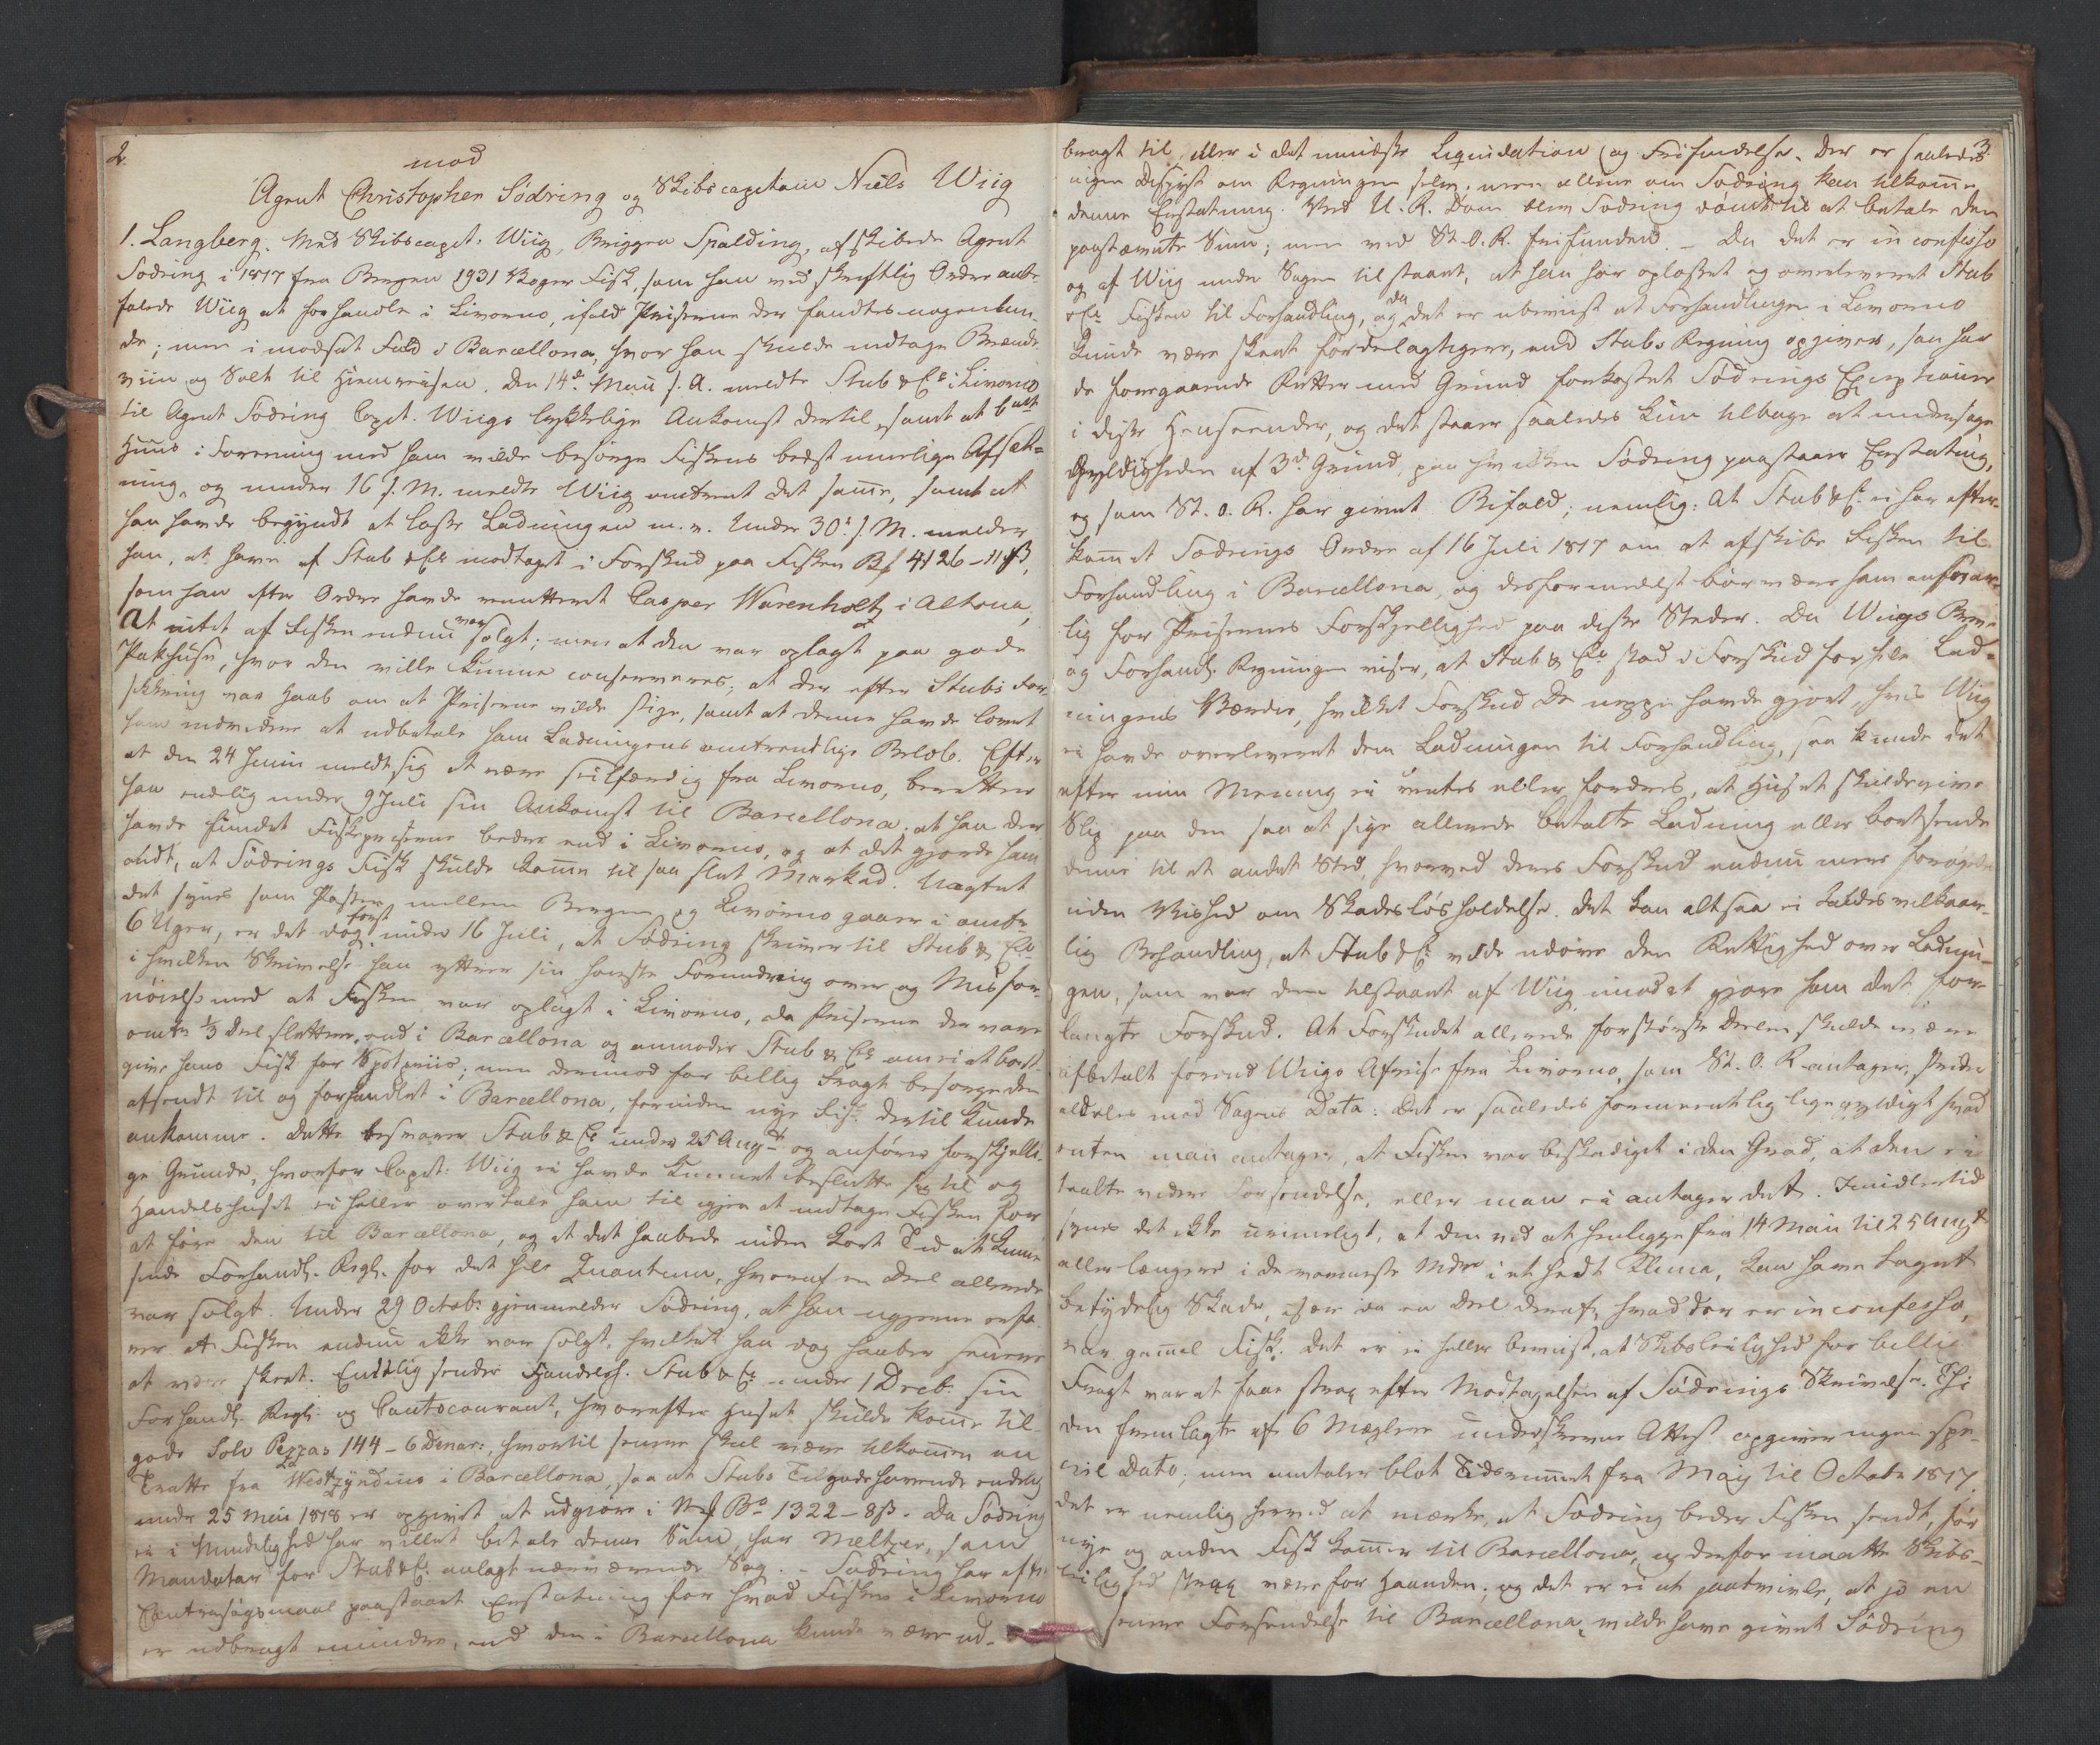 2.
mod
Agent Christopher Sødring og Skibscapitain Niels Wiig
1. Langberg. Med Skibscapt. Wiig, Briggen Spalding, afskibede Agent
Sødring i 1817 fra Bergen 1931 Voger Fisk, som han ved skriftlig Ordre anbe-
falede Wiig at forhandle i Livorno, ifald Priserne der fandtes nogenlun-
de; men i modsat Fald i Barcellona, hvor han skulde indtage Brænde-
viin og Salt til Hiemreisen. Den 14de Maii s. A. meldte Stub & Co i Livorno
til Agent Sødring Capt. Wiigs lykkelige Ankomst dertil, samt at
Huus i Forening med ham vilde besørge Fiskens bedst muelige Afsæt-
ning, og under 16 s. M. meldte Wiig omtrent det samme, samt at
han havde begyndt at losse Ladningen m. v. Under 30 s. M. melder
han, at have af Stub & Co modtaget i Forskud paa Fisken 4126 - 11 ß,
som han efter Ordre havde remitteret Casper Warenholtz i Altona,
at intet af Fisken endnu var solgt; men at den var oplagt paa gode
Pakhuse, hvor den ville kunne conserveres; at der efter Stubs For-
sikkring var Haab om at Priserne vilde stige, samt at denne havde lovet
ham endvidere at udbetale ham Ladningens omtrentlige Beløb. Efter
at den 24 Junii meldt sig at være seilfærdig fra Livorno, beretter
han endelig under 9 Juli sin Ankomst til Barcellona; at han der
havde fundet Fiskepriserne bedre end i Livorno, og at det gjorde ham
ondt, at Sødrings Fisk skulde komme til saa slet Marked. Uagtet
det synes som Posten mellem Bergen og Livorno gaaer i omtr.
6 Uger, er det dog først under 16 Juli, at Sødring skriver til Stub & Co
i hvilken Skrivelse han yttrer sin høieste Forundring over og Misfor-
nøielse med at Fisken var oplagt i Livorno, da Priserne der vare
omtr. 1/3 Deel slettere, end i Barcellona og anmoder Stub & Co om ei at bort-
give hans Fisk for Spotpriis; men derimod for billig Fragt besørge den
afsendt til og forhandlet i Barcellona, forinden nye Fisk dertil kunde
ankomme. Dette besvarer Stub & Co under 25 Augt. og anfører forskjelli-
ge Grunde, hvorfor Capt. Wiig ei havde kunnet beslutte sig til og
Handelshuset ei heller overtale ham til igjen at indtage Fisken for
at føre den til Barcellona, og at det haabede inden kort Tid at kunne
sende Forhandl. Regn. for det hele Quantum, hvoraf en Deel allerede
var solgt. Under 29 Octob. gjenmelder Sødring, at han ugjerne erfa-
rer at Fisken endnu ikke var solgt, hvilket han dog haaber senere
at være skeet. Endelig sender Handelsh. Stub & Co under 1 Decb. sin
Forhandl. Regn. og Contocourant, hvorefter Huset skulde komme til-
gode Solv Pezzas 144 - 6 Denar:, hvortil senere skal være tilkommen en
Tratte fra Westzyndius i Barcellona, saa at Stubs Tilgodehavende endelig
under 25 Maii 1818 er opgivet at udgiøre i Bo 1322 - 8 ß. Da Sødring
ei i Mindelighed har villet betale denne Sum, har Meltzer, som
Mandatar for Stub & Co anlagt nærværende Sag. - Sødring har efter
Contrasøgsmaal paastaaet Erstatning for hvad Fisken i Livorno
er udbragt mindre, end den i Barcellona kunde være ud-
3.
bragt til, eller i det mindste Liqvidation og Frifindelse. Der er saaledes
ingen Dispyt om Regningen selv, men allene om Sødring kan tilkomme
denne Erstatning. Ved U. R. Dom blev Sødring dømt til at betale den
paastævnte Sum; men ved St. O. R. frifunden. - Da det er in confesso
og af Wiig under Sagen tilstaaet, at han har oplosset og overleveret Stub
& Co Fisken til Forhandling, og da det er ubeviist at Forhandlingen i Livorno
kunde være skeet fordelagtigere, end Stubs Regning opgiver, saa har
de foregaaende Retter med Grund forkastet Sødrings Exceptioner
i disse Henseender, og det staaer saaledes kun tilbage at undersøge
Gyldigheden af 3die Grund, paa hvilken Sødring paastaaer Erstatning,
og som St. O. R. har givet Bifald; nemlig: at Stub & Co ei har efter-
kommet Sødrings Ordre af 16 Juli 1817 om at afskibe Fisken til
Forhandling i Barcellona, og desformedelst bør være ham ansvar-
lig for Prisernes Forskjellighed paa disse Steder. Da Wiigs Breve
og Forhandl. Regningen viser, at Stub & Co stod i Forskud for hele Lad-
ningens Værdie, hvilket Forskud De neppe havde gjort, hvis Wiig
ei havde overleveret dem Ladningen til Forhandling, saa kunde det
efter min Mening ei ventes eller fordres, at Huset skulde give
Slip paa den saa at sige allerede betalte Ladning eller bortsende
denne til et andet Sted, hvorved deres Forskud endnu mere forøgedes
uden Vished om Skadesløsholdelse. Det kan altsaa ei kaldes vilkaar-
lig Behandling, at Stub & Co vilde udøve den Rettighed over Ladnin-
gen, som var dem tilstaaet af Wiig imod at gjøre ham det for-
langte Forskud. At Forskudet allerede for største Delen skulde være
afbetalt førend Wiigs Afreise fra Livorno, som St. O. R. antager, strider
aldeles mod Sagens Data. Det er saaledes formeentlig ligegyldigt hvad
enten man antager, at Fisken var beskadiget i den Grad, at den ei
taalte videre Forsendelse, eller man ei antager det. Imidlertid
synes det ikke urimeligt, at den ved at henligge fra 14 Maii til 25 Augt.
eller længere i de varmeste Mdr. i et hedt Clima, kan have taget
betydelig Skade, især da en Deel deraf, hvad der er in confesso,
var gammel Fisk. Det er ei heller beviist, at Skibsleilighed for billig
Fragt var at faae strax efter Modtagelsen af Sødrings Skrivelse. Thi
den fremlagte af 6 Mæglere underskrevne Attest opgiver ingen spe-
ciel Dato; men omtaler blot Tidsrummet fra May til Octobr 1817.
Det er nemlig herved at mærke, at Sødring beder Fisken sendt, før
nye og anden Fisk kommer til Barcellona, og derfor maatte Skibs-
leilighed strax være for Haanden; og det er ei at paatvivle, at jo en
senere Forsendelse til Barcellona, vilde have givet Sødring